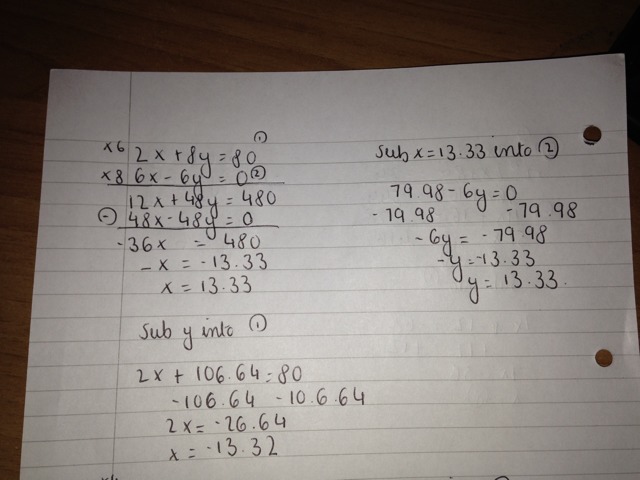 ①
×6 2x + 8y = 80
×8 6x - 6y = 0 ②
12x + 48y = 480
(-) 48x - 48y = 0
-36x = 480
-x = -13.33
x = 13.33
Sub y into ①
2x + 106.64 = 80
-106.64 -10.6.64
2x = -26.64
x = -13.32
Sub x = 13.33 into ②
79.98 - 6y = 0
-79.98 -79.98
-6y = -79.98
-y = -13.33
y = 13.33.